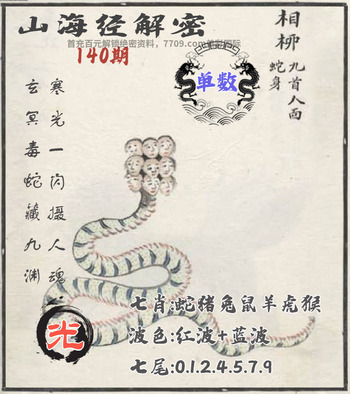 山海经解密
首充百元解锁绝密资料，7709.com
140期
相柳
九首人面
蛇身
单数
寒光一闪摄人魂
玄冥毒蛇藏九渊
光
七肖:蛇猪兔鼠羊虎猴
波色:红波+蓝波
七尾:0.1.2.4.5.7.9